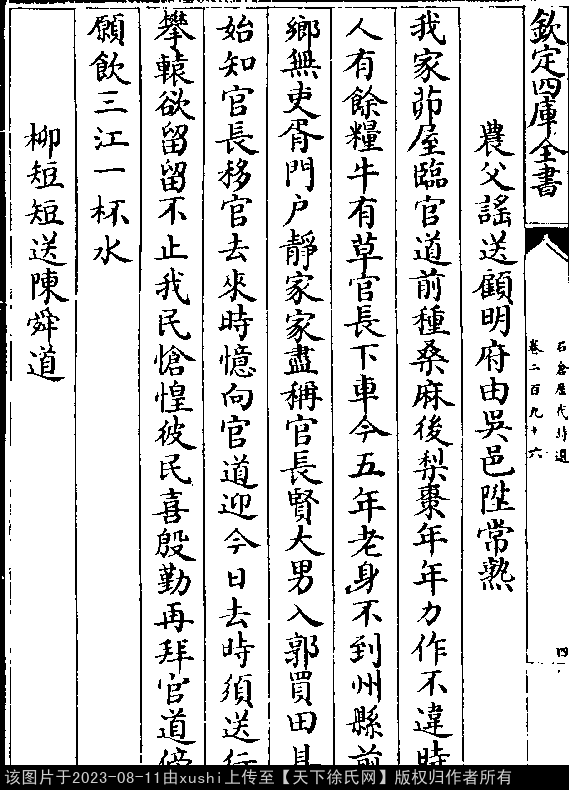 欽定四庫全書
石倉歷代詩選
卷二百九十六
四
農父謠送顧明府由吳邑陞常熟
我家茆屋臨官道前種桑麻後梨棗年年力作不違時
人有餘糧牛有草官長下車今五年老身不到州縣前
鄉無吏胥門戶靜家家盡稱官長賢大男入郭買田具
始知官長移官去來時憶向官道迎今日去時須送行
攀轅欲留留不止我民愴惶彼民喜殷勤再拜官道傍
願飲三江一杯水
柳短短送陳舜道
该图片于2023-08-11由xushi上传至【天下徐氏网】版权归作者所有